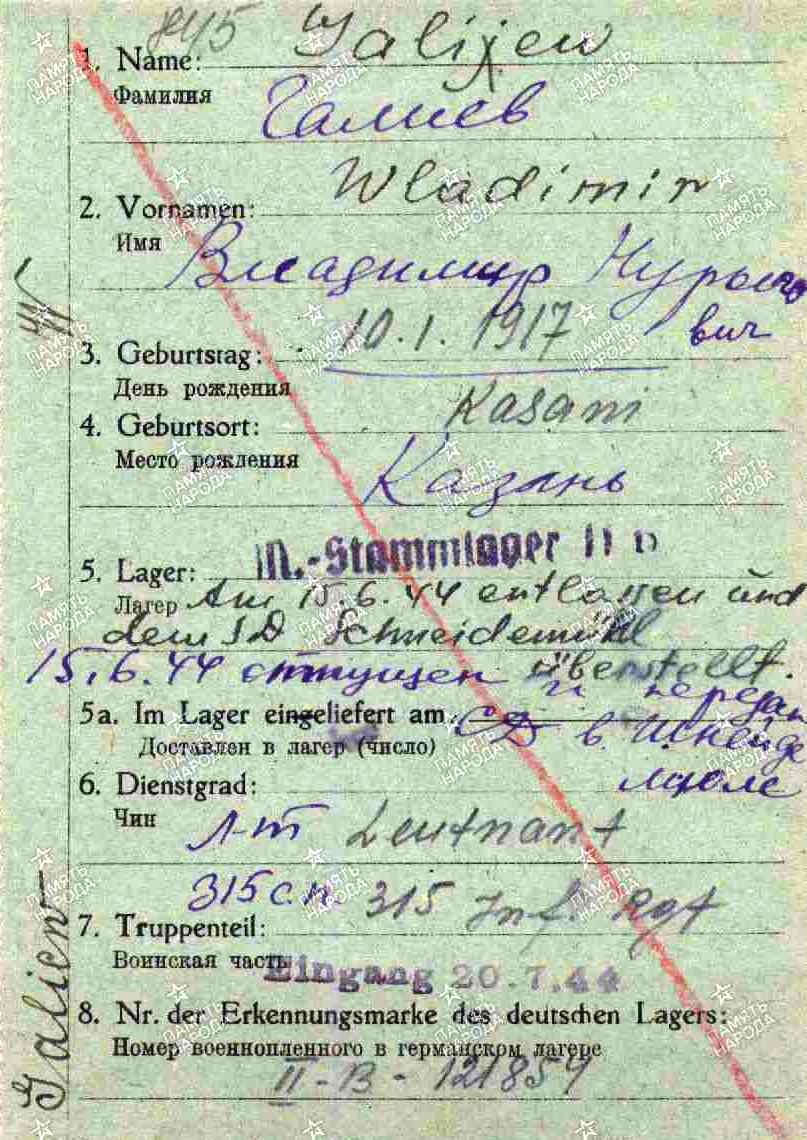 1. Name: Galijew
Фамилия
Галиев
Wladimir
2. Vornamen:
Имя
Владимир Нурыевич
3. Geburtstag: 10.1.1917
День рождения
4. Geburtsort: Kasani
Место рождения
Казань
5. Lager: M.-Stammlager II B
Лагерь Am 15.6.44 entlassen und
dem SD Schneidemühl
überstellt.
15.6.44 отпущен и передан
5a. Im Lager eingeliefert am: СД в Шнейде
Доставлен в лагерь (число)
мюле
6. Dienstgrad:
Чин
Л-т Leutnant
315 с.п. 315 Inf. Rgt
7. Truppenteil:
Воинская часть
Eingang 20.7.44
8. Nr. der Erkennungsmarke des deutschen Lagers:
Номер военнопленного в германском лагере
II-B-121859
Galiew
ПАМЯТЬ
НАРОДА